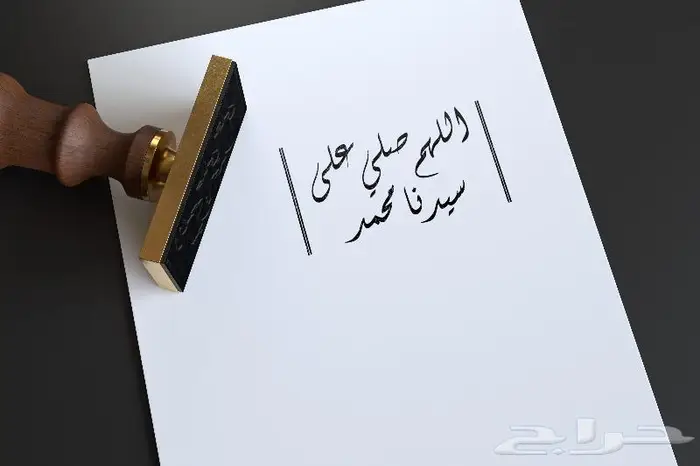 اللهم صلي على
سيدنا محمد
حراج